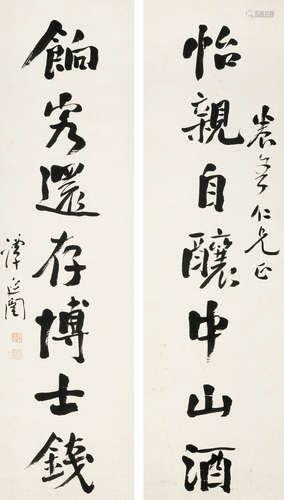 怡親自釀中山酒
餉客還存博士錢
仁兄正
譚延闓